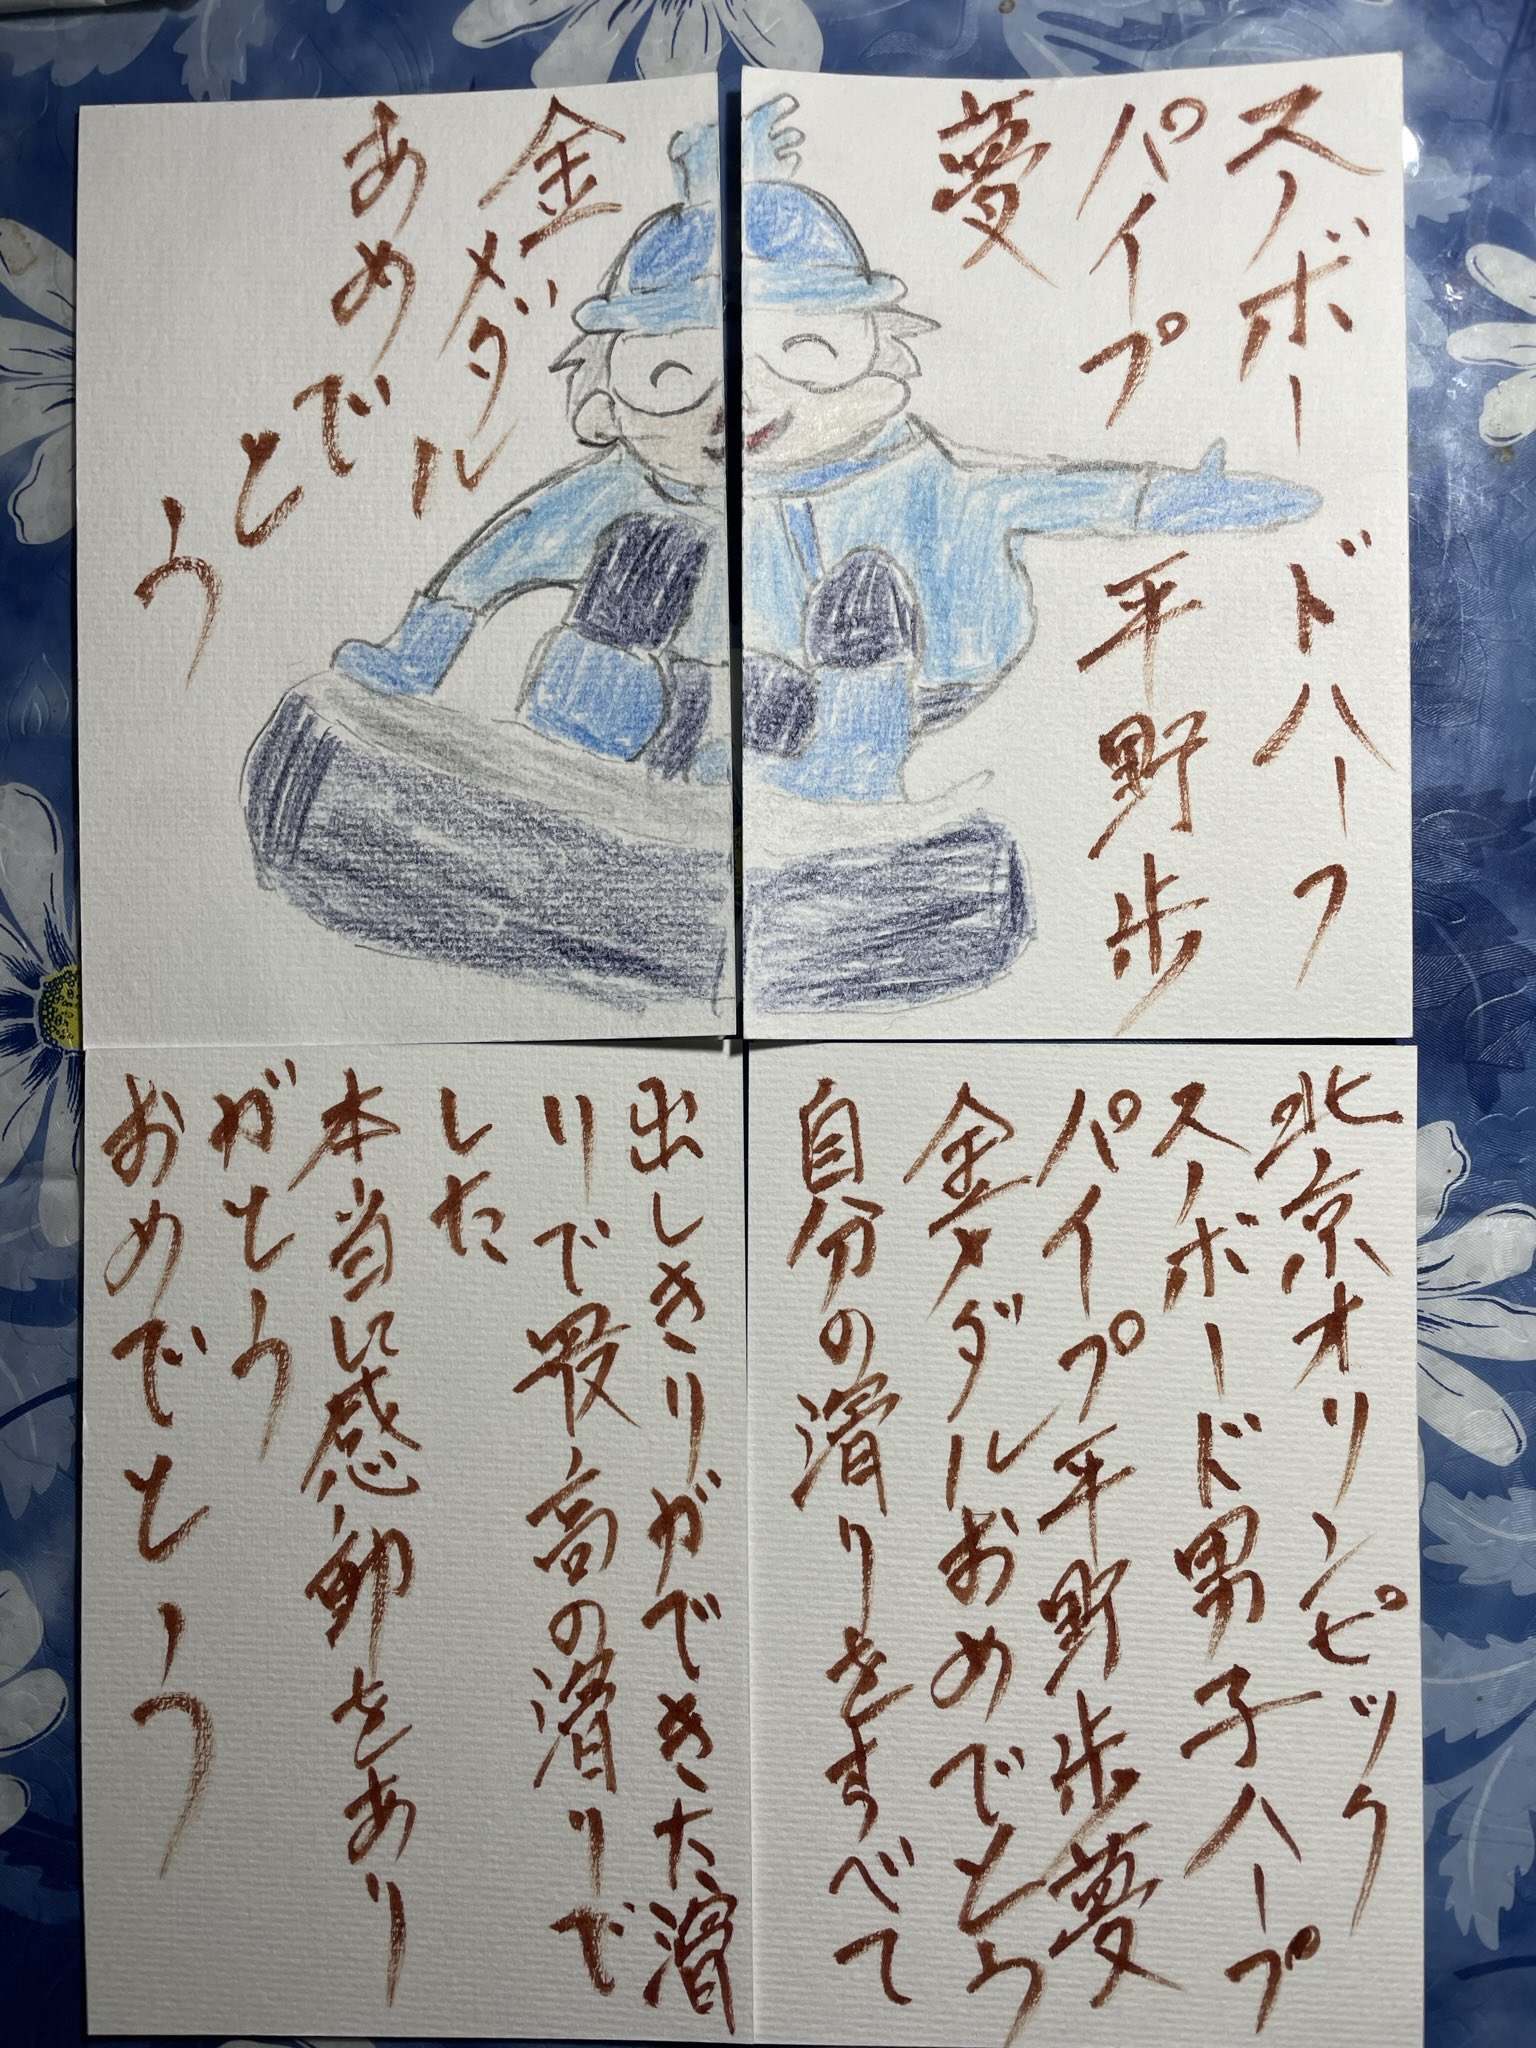 スノーボードハーフ
パイプ 平野歩
夢
金メダル
おめでとう
北京オリンピック
スノーボード男子ハープ
パイプ平野歩夢
金メダルおめでとう
自分の滑りをすべて
出しきりができた滑
りで最高の滑りで
した
本当に感動をあり
がとう
おめでとう